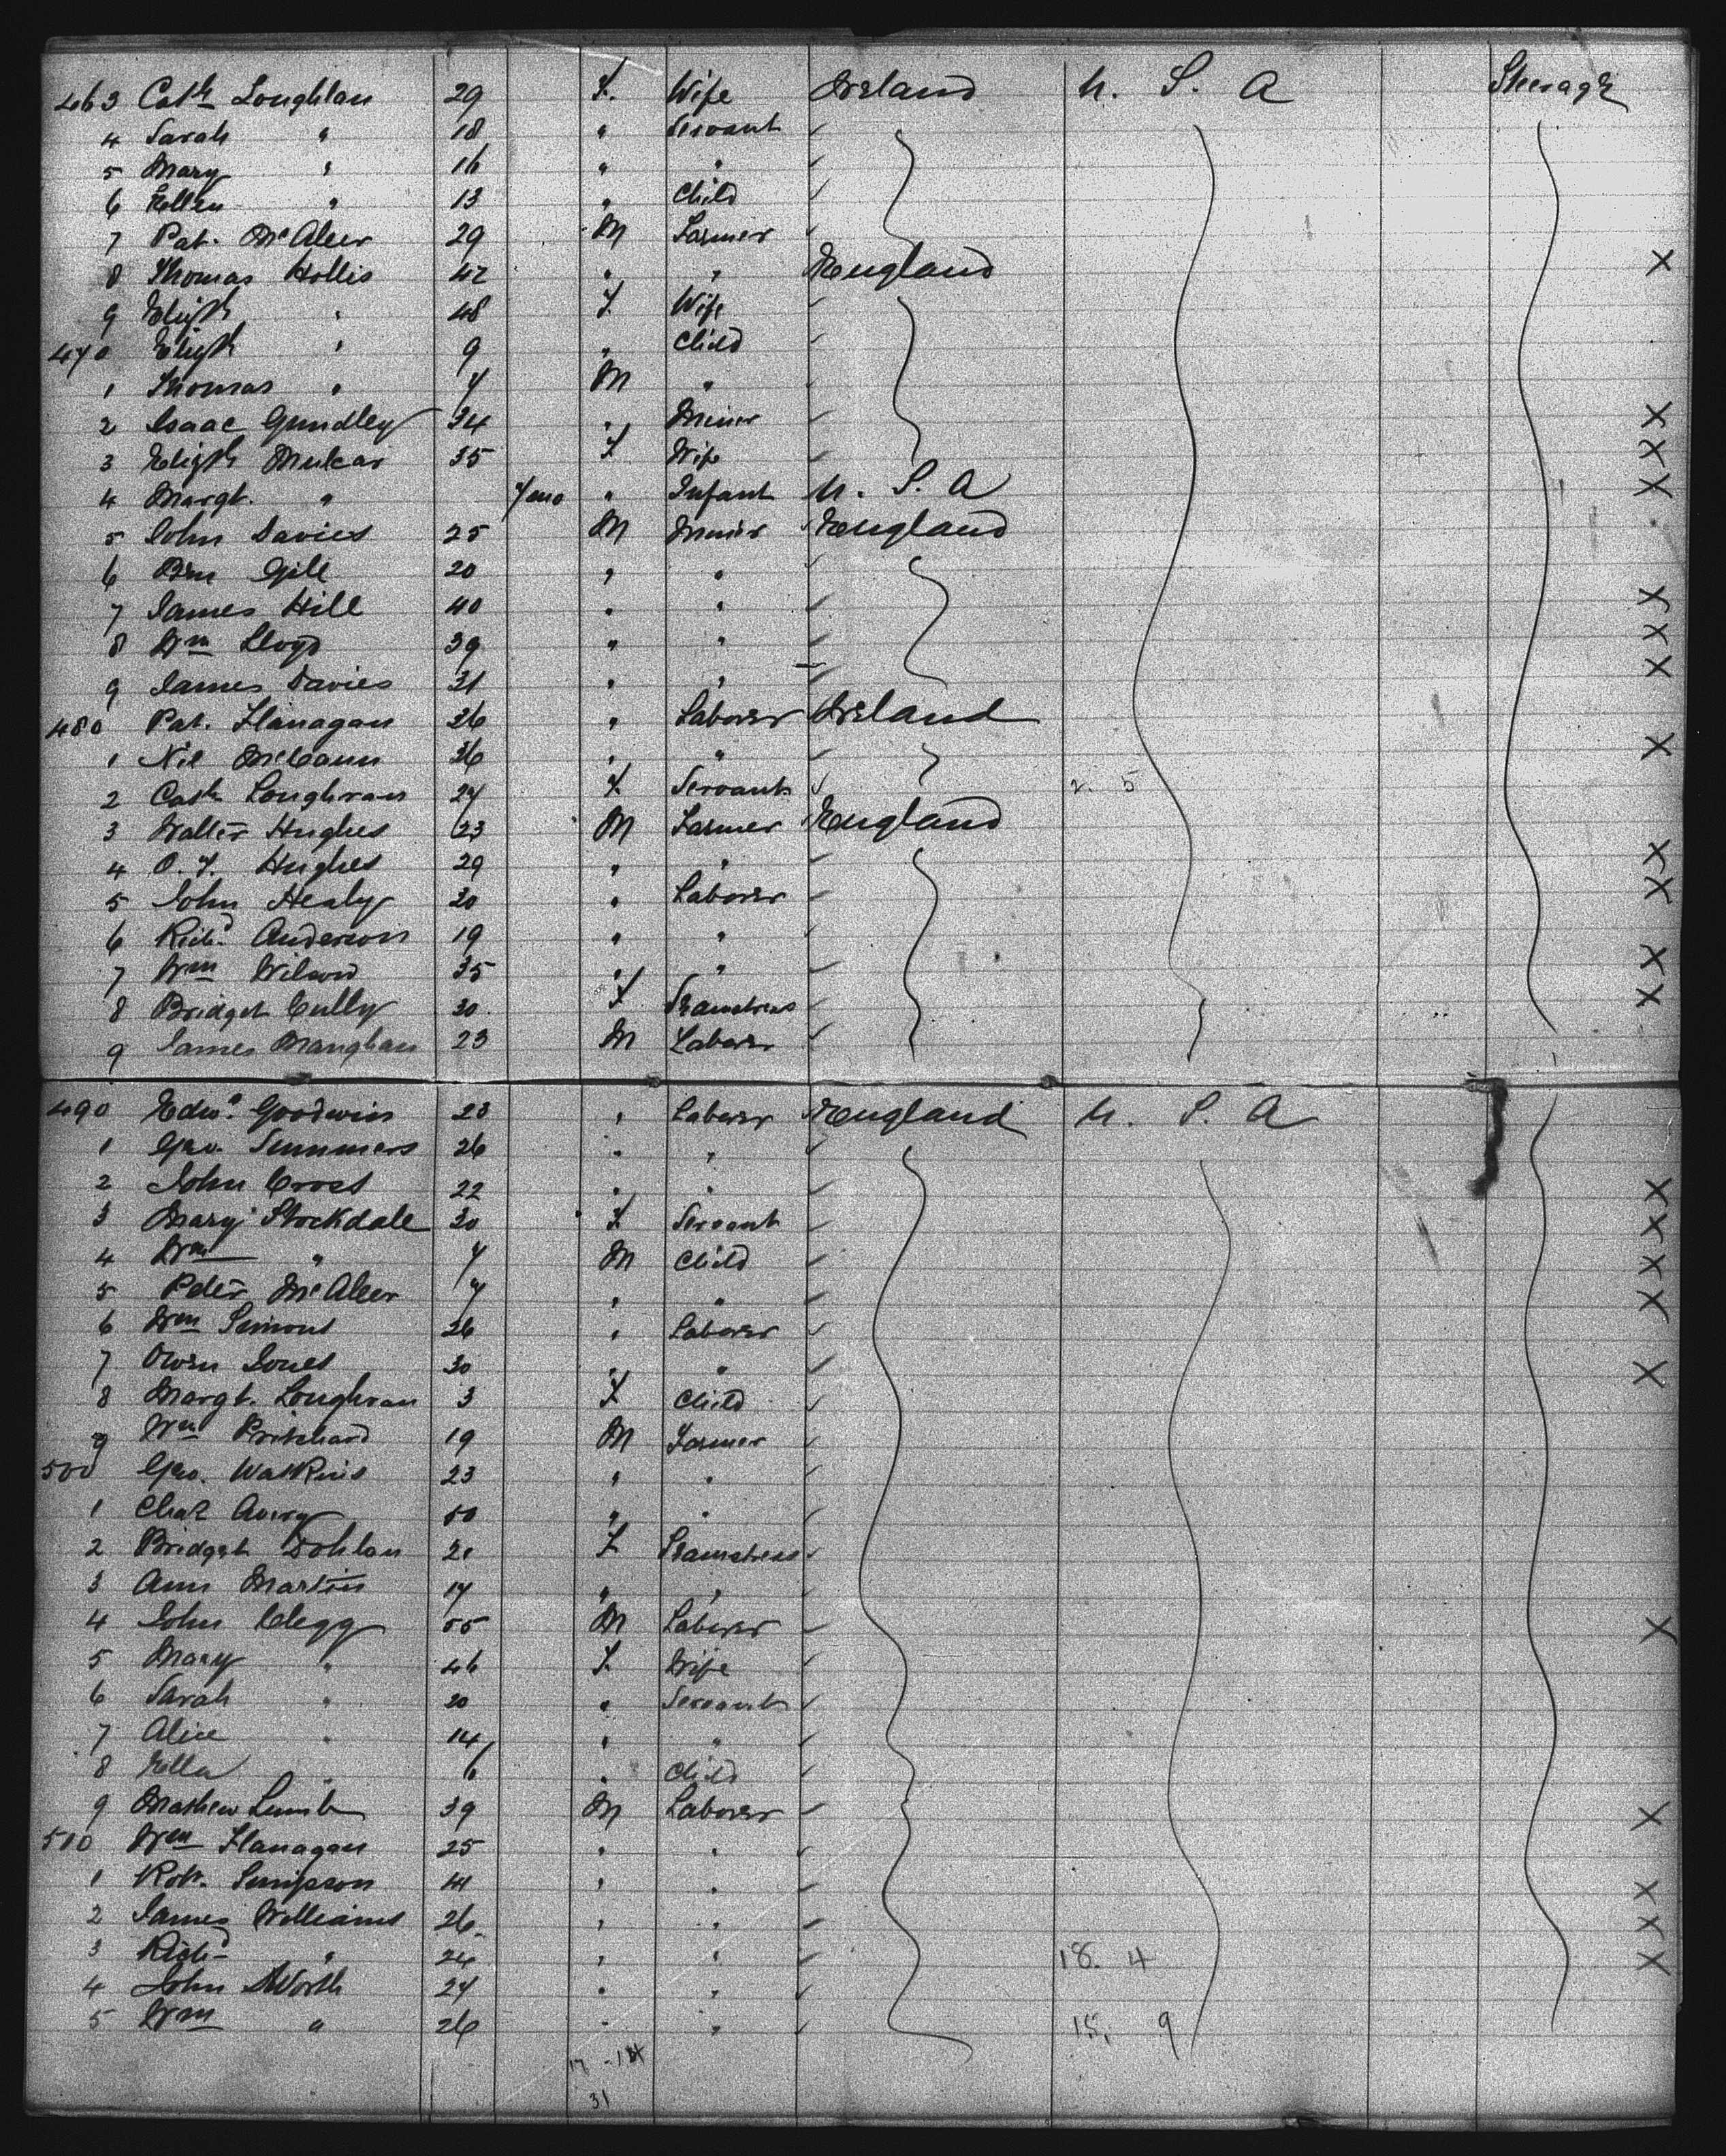 463 Cath Loughlan 29 F. Wife Ireland U. S. A Steerage
4 Sarah " 18 " Servant
5 Mary " 16 " "
6 Ellen " 13 " Child
7 Pat. McAleer 29 M Farmer
8 Thomas Hollis 42 " " England X
9 Elizth " 48 F. Wife
470 Elizth " 9 " Child
1 Thomas " 7 M "
2 Isaac Gundley 34 " Miner X
3 Elizth 35 F Wife X
4 Margt. " 7 mo " Infant U. S. A X
5 John Davies 25 M Miner England
6 Ben Gill 20 " "
7 James Hill 40 " " X
8 Wm Lloyd 39 " " X
9 James Davies 31 " " X
480 Pat. Flanagan 26 " Laborer Ireland
1 Nil McCann 36 " " X
2 Cath Loughran 27 F. Servant 2. 5
3 Walter Hughes 23 M Farmer England
4 O. F. Hughes 29 " " X
5 John Healy 30 " Laborer X
6 Richd Anderson 19 " "
7 Wm Wilson 35 " " X
8 Bridget Cully 30 F. Seamstress X
9 James Manghan 23 M Laborer
490 Edwd Goodwin 23 " Laborer England U. S. A
1 Geo. Summers 26 " "
2 John Cross 22 " " X
3 Mary Stockdale 30 F Servant X
4 Wm " 7 M Child X
5 Peter McAleer 7 " " X
6 Wm Simons 26 " Laborer
7 Owen Jones 30 " " X
8 Margt. Loughran 3 F Child
9 Wm Pritchard 19 M Farmer
500 Geo. Watkins 23 " "
1 Chas Avery 50 " "
2 Bridget 20 F Seamstress
3 Ann Martin 17 " "
4 John Clegg 55 M Laborer X
5 Mary " 46 F. Wife
6 Sarah " 20 " Servant
7 Alice " 14 " "
8 Ella " 6 " Child
9 Mathew Lumb 39 M Laborer X
510 Wm Flanagan 25 " "
1 Robt. Simpson 41 " " X
2 James Williams 26 " " X
3 Richd " 24 " " 18. 4 X
4 John Worth 27 " "
5 Wm " 26 " " 15. 9
17 - 14
31